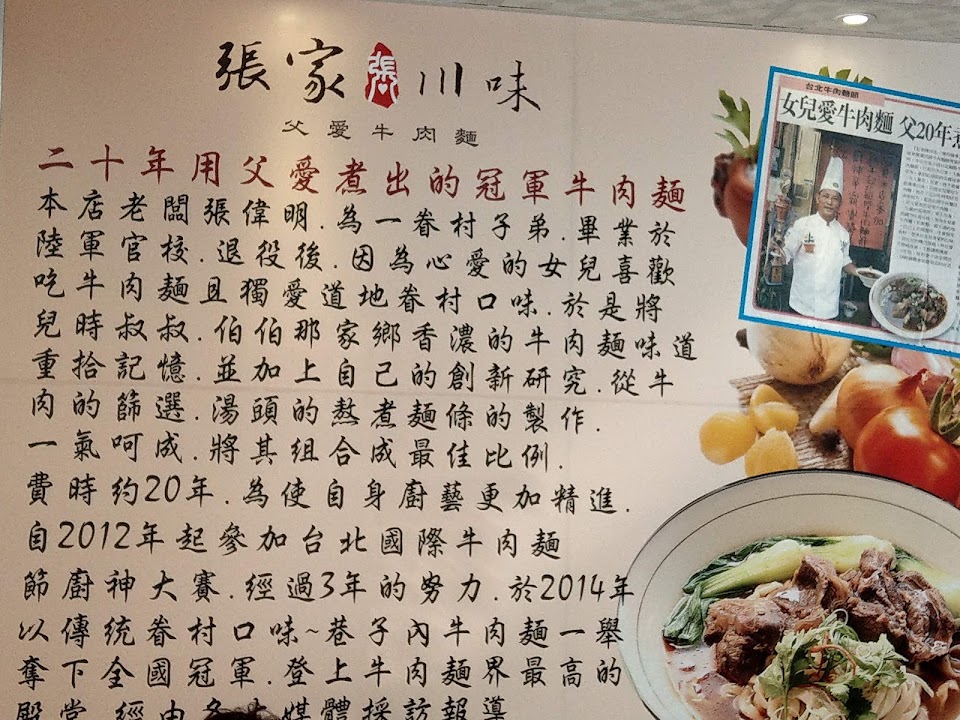 張家 張 川味
父愛牛肉麵
二十年用父愛煮出的冠軍牛肉麵
本店老闆張偉明.為一眷村子弟.畢業於
陸軍官校.退役後.因為心愛的女兒喜歡
吃牛肉麵且獨愛道地眷村口味.於是將
兒時叔叔.伯伯那家鄉香濃的牛肉麵味道
重拾記憶.並加上自己的創新研究.從牛
肉的篩選.湯頭的熬煮麵條的製作.
一氣呵成.將其組合成最佳比例.
費時約20年.為使自身廚藝更加精進.
自2012年起參加台北國際牛肉麵
節廚神大賽.經過3年的努力.於2014年
以傳統眷村口味~巷子內牛肉麵一舉
奪下全國冠軍.登上牛肉麵界最高的
殿堂.經由多方媒體採訪報導
台北牛肉麵節
女兒愛牛肉麵 父20年煮